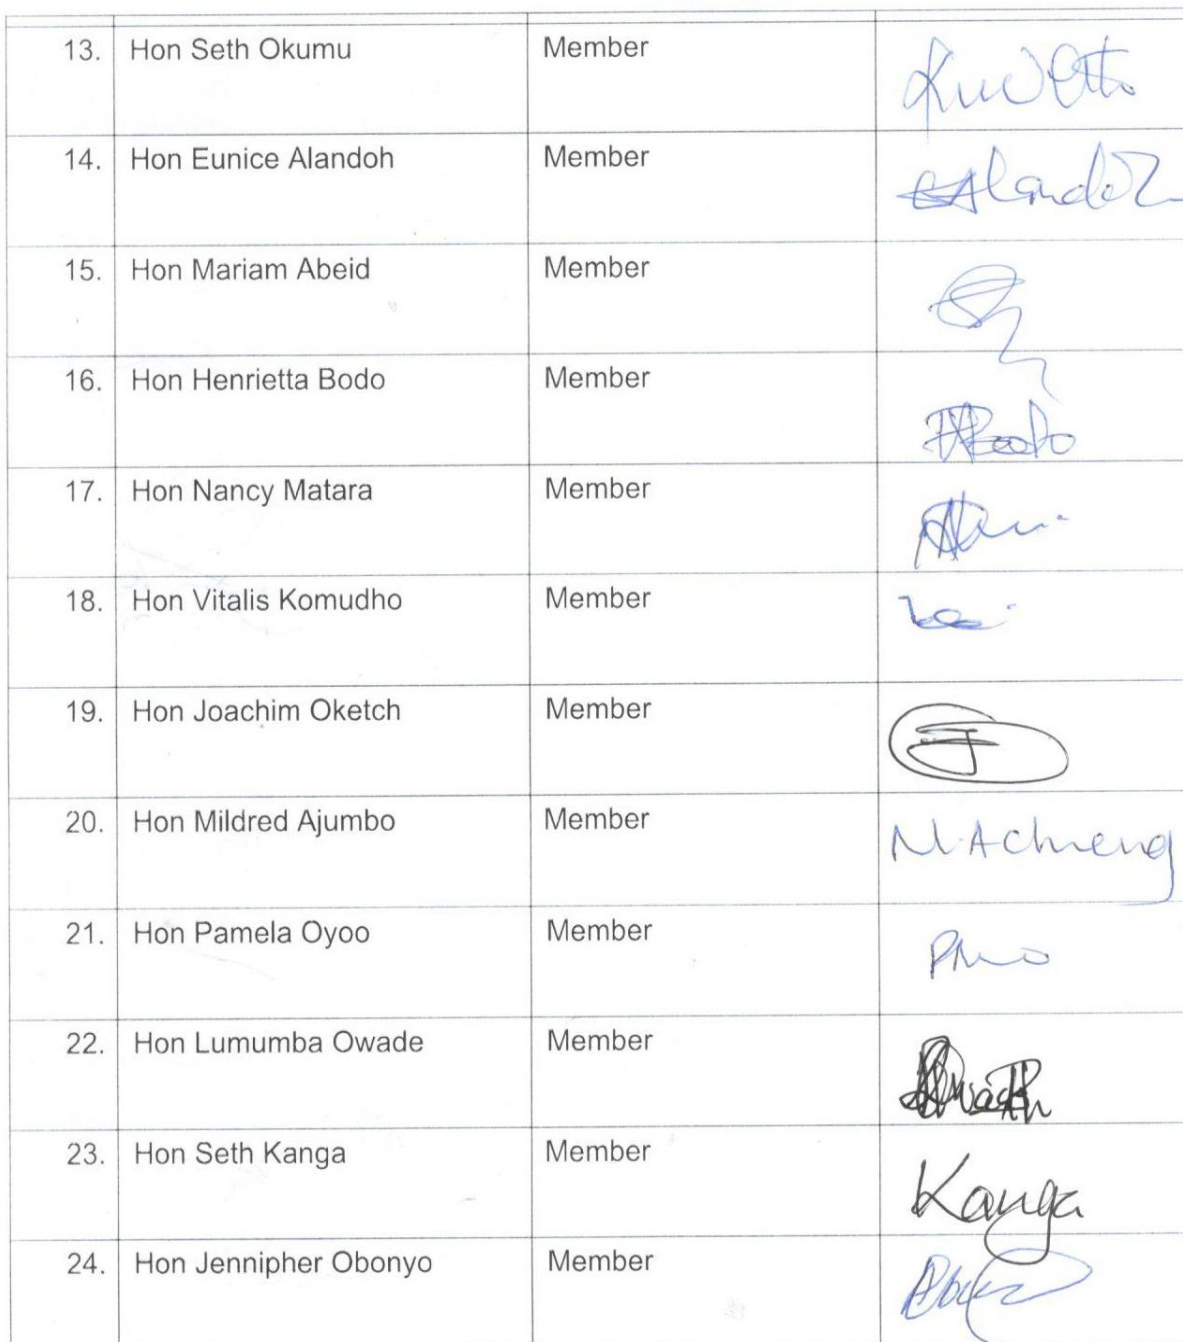 13. Hon Seth Okumu Member
14. Hon Eunice Alandoh Member EAlandoh
15. Hon Mariam Abeid Member
16. Hon Henrietta Bodo Member HBodo
17. Hon Nancy Matara Member
18. Hon Vitalis Komudho Member
19. Hon Joachim Oketch Member
20. Hon Mildred Ajumbo Member M.Achieng
21. Hon Pamela Oyoo Member
22. Hon Lumumba Owade Member
23. Hon Seth Kanga Member Kanga
24. Hon Jennipher Obonyo Member